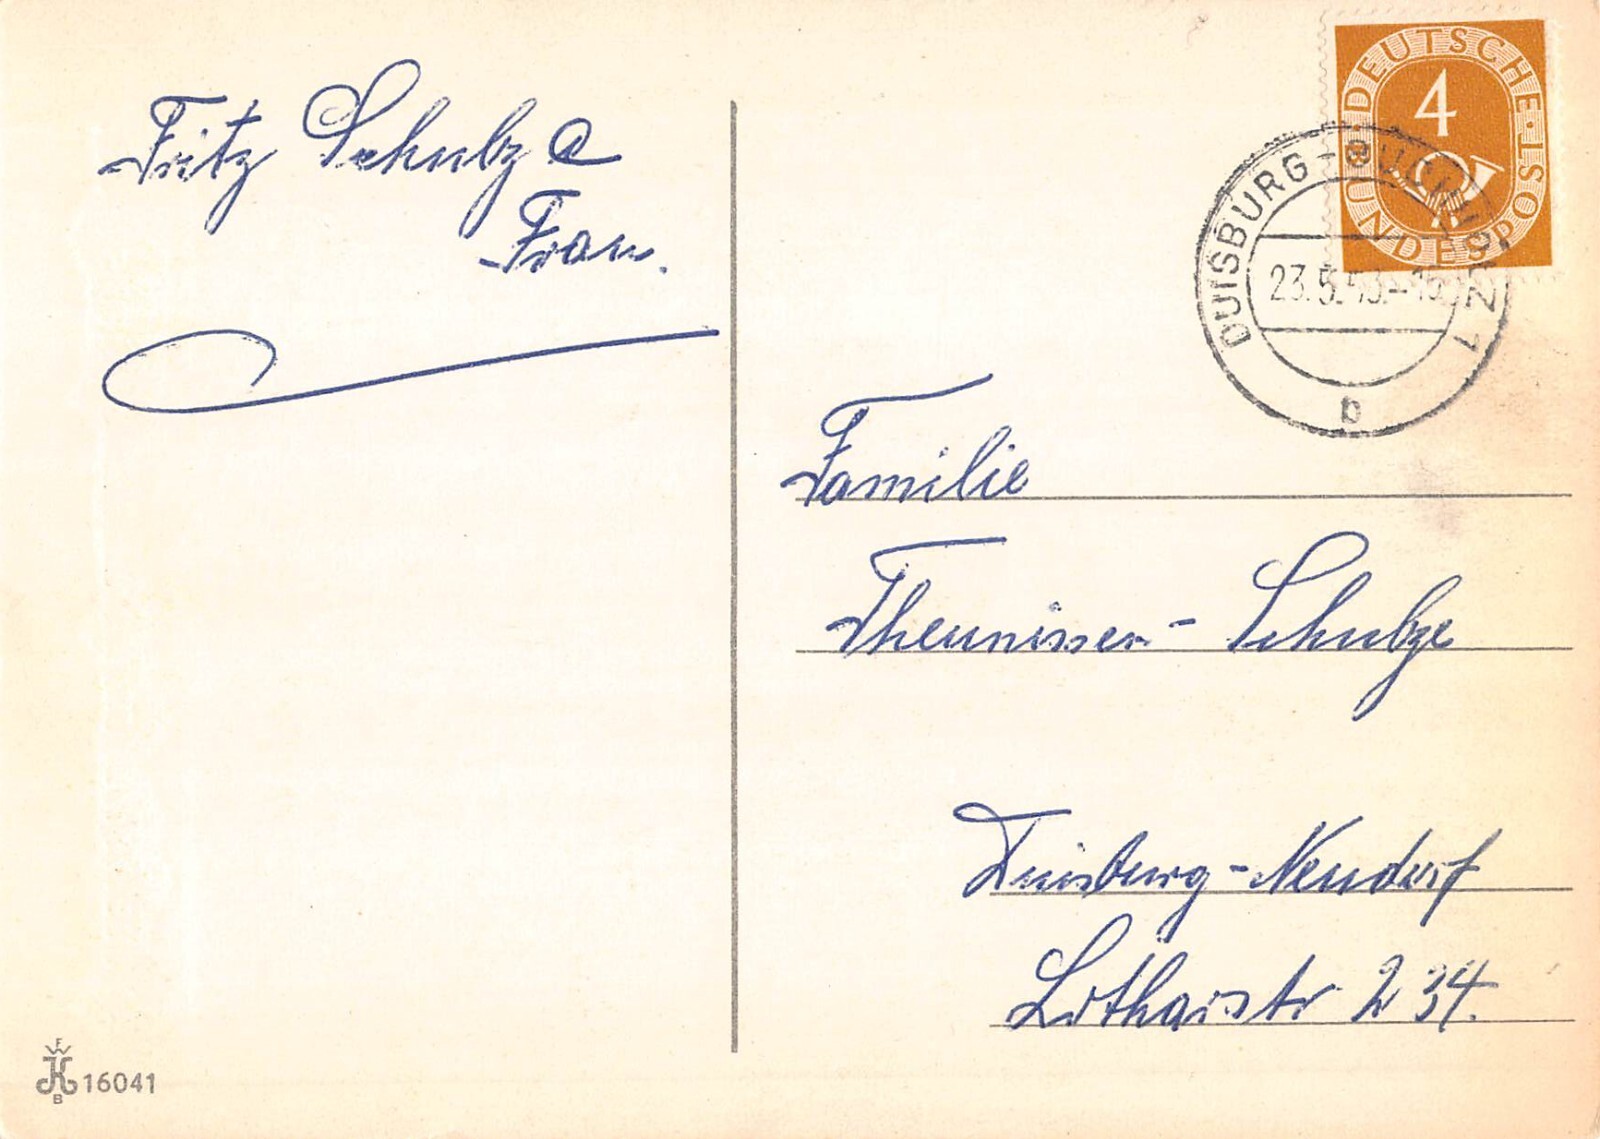 Fritz Schulz e
Frau.
DEUTSCHE BUNDESPOST
4
DUISBURG-RUHRORT 1
23.5.53.-18
b
Familie
Theunissen - Schulze
Duisburg - Neudorf
Lotharstr 234.
FW
B
16041